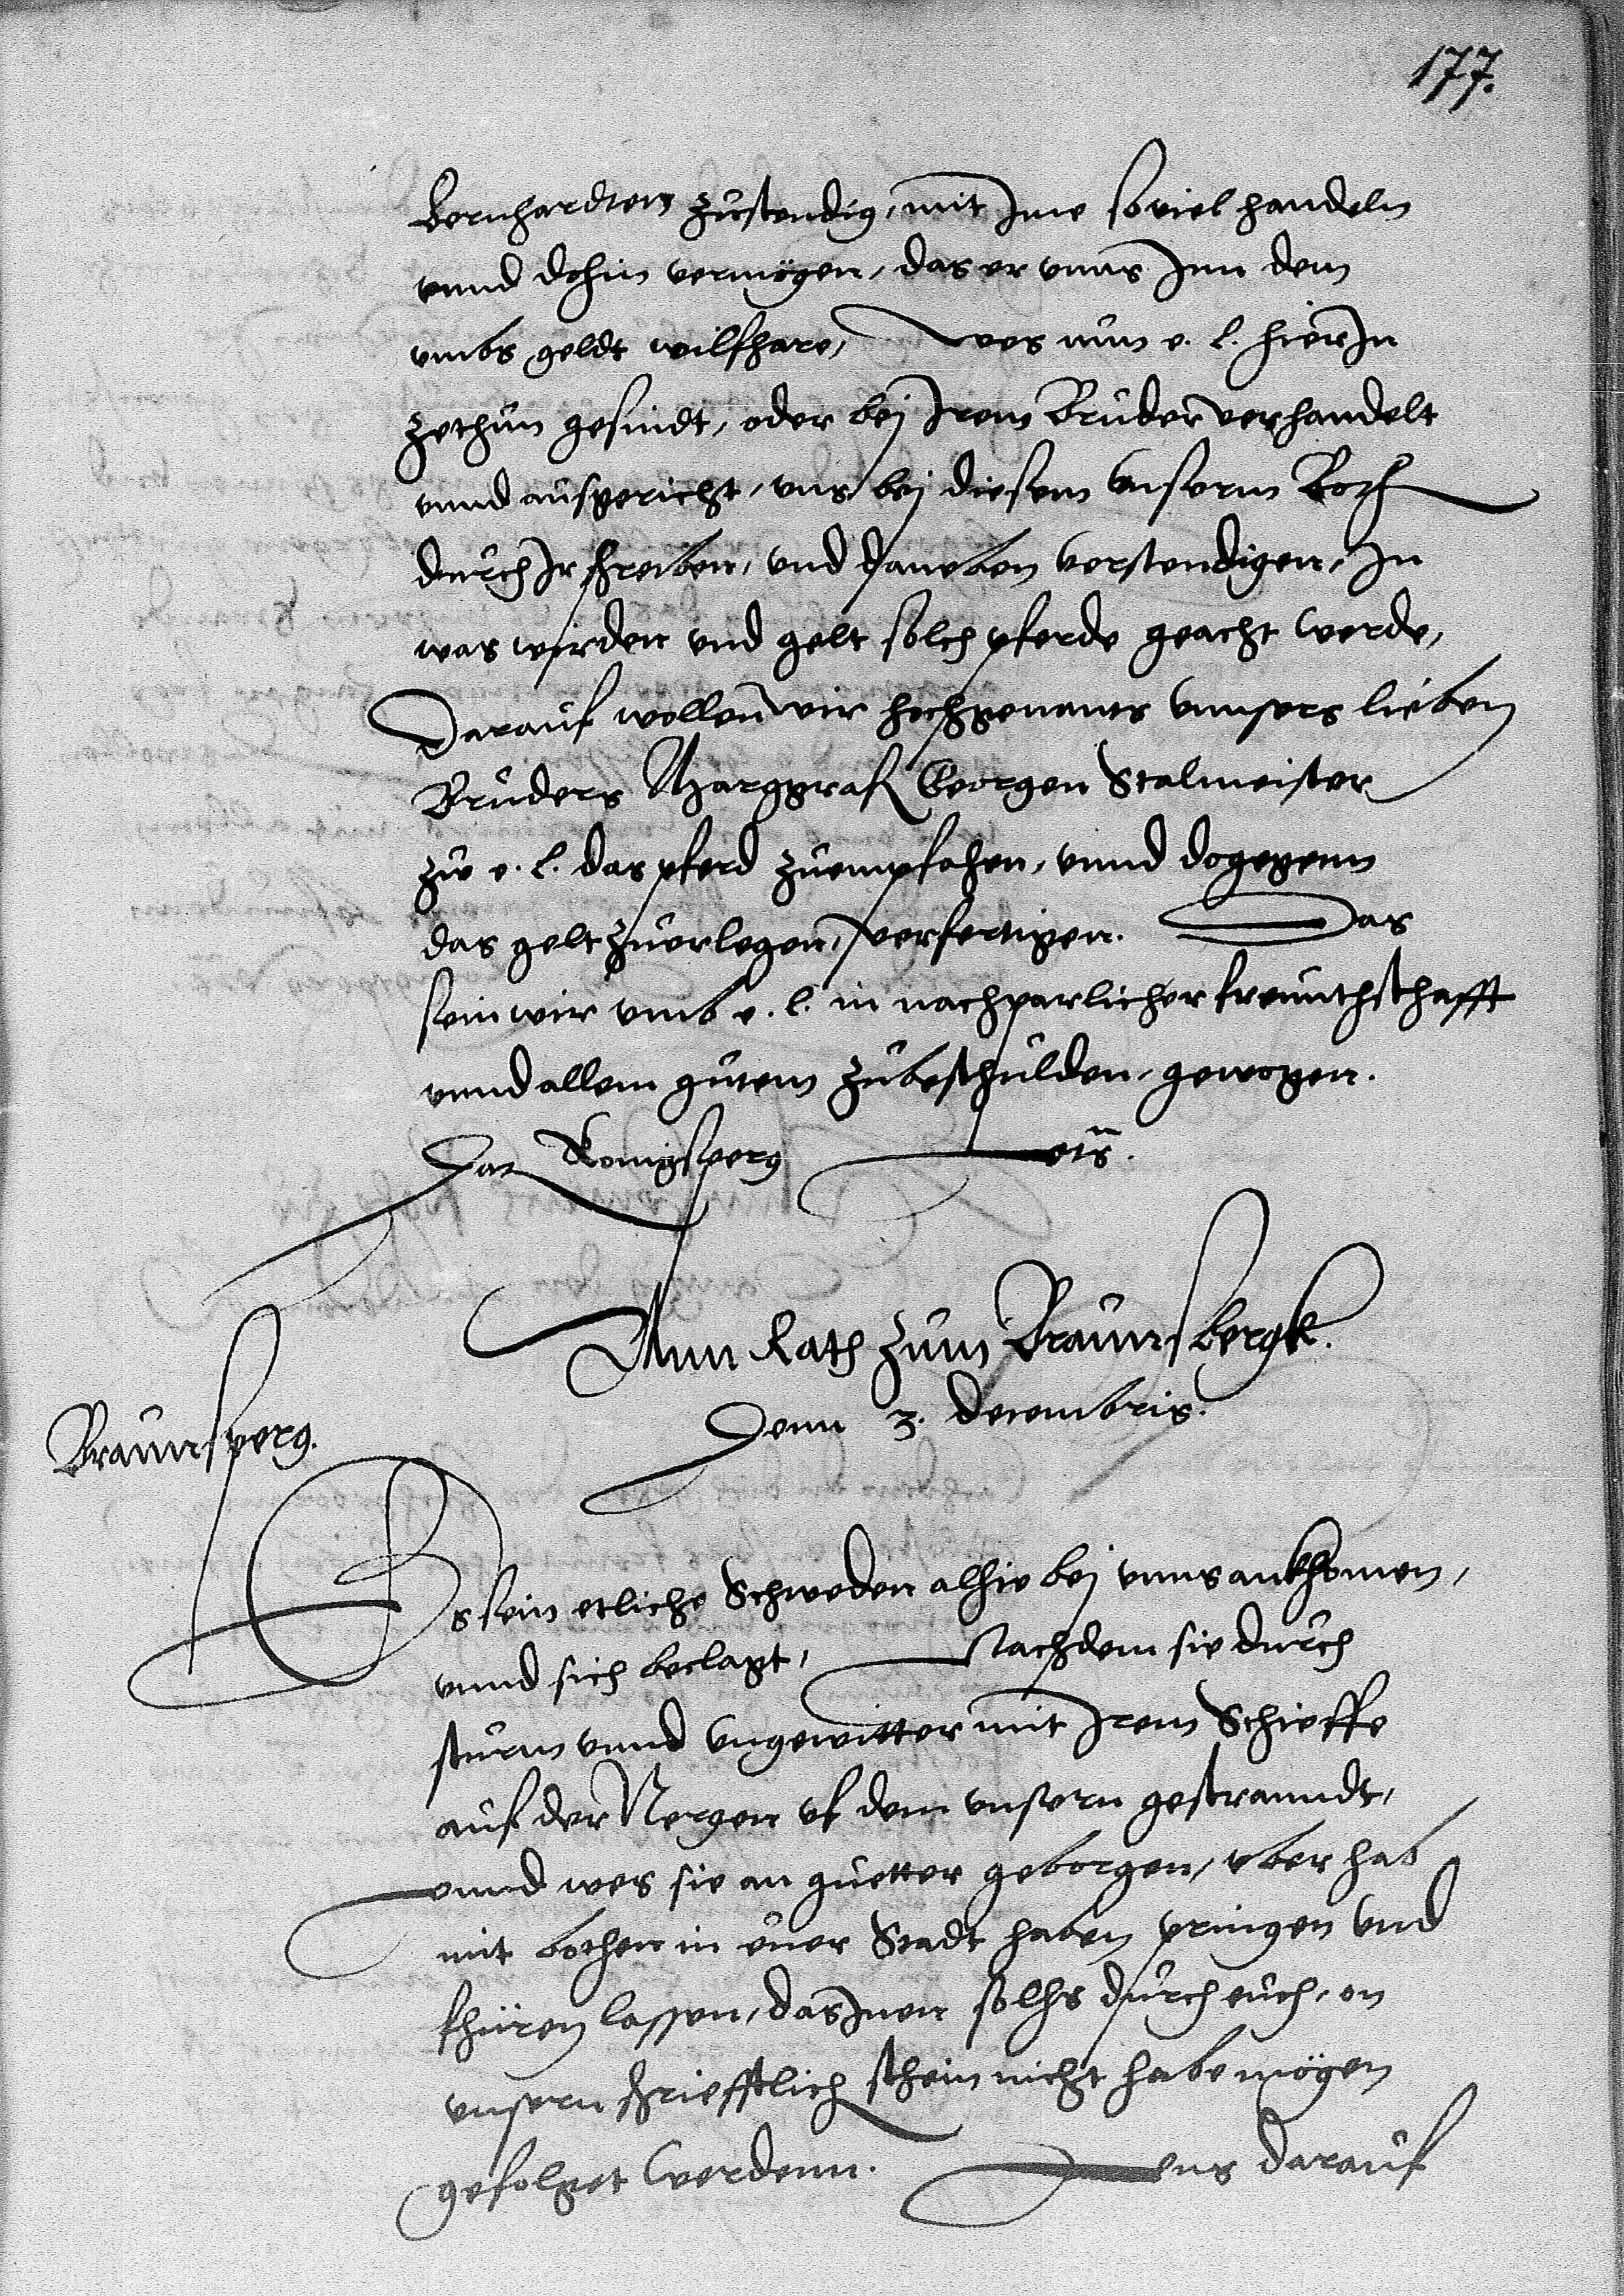 177.
Bernhardten zustendig, mit Ime souiel handeln
vnnd dohin vermögen, das er vnns Inn dem
vmbs geldt wilfhare, was nun e. l. hierIn
zethun gesindt, oder bej Irem Bruder verhandelt
vnnd ausgericht, vns bej diesem vnserm Both
durch Ir schreiben, vnd daneben verstendigen, In
was wirden vnd gelt solch pferde geacht werde,
Darauf wollen wir hochgenants vnnsers lieben
Bruders Marggraf Georgen Stalmeister
zu e. l. das pferd zuempfahen, vnnd dogegenn
das gelt zuerlegen, verfertigen. Das
sein wir vmb e. l. in nachparlicher freunthschafft
vnnd allem gutem zubeschulden, gewogen.
Dat Konigsperg uts.
Ann Rath zum Braunsbergk.
Denn 3. decembris.
Braunsperg.
Es sein etliche Schweden alhie bej vnns ankhomen,
vnnd sich beclagt, Nachdem sie durch
sturm vnnd vngewitter mit Irem Schieffe
auf der Nergen vf dem vnsern gestranndt,
vnnd was sie an guetter geborgen, vber hab
mit bothen in euer Stadt haben pringen vnd
fhüren lassen, das Inen solhs durch euch, on
vnsern schriefftlich schein nicht habe mögen
gefolget werdenn. vns darauf